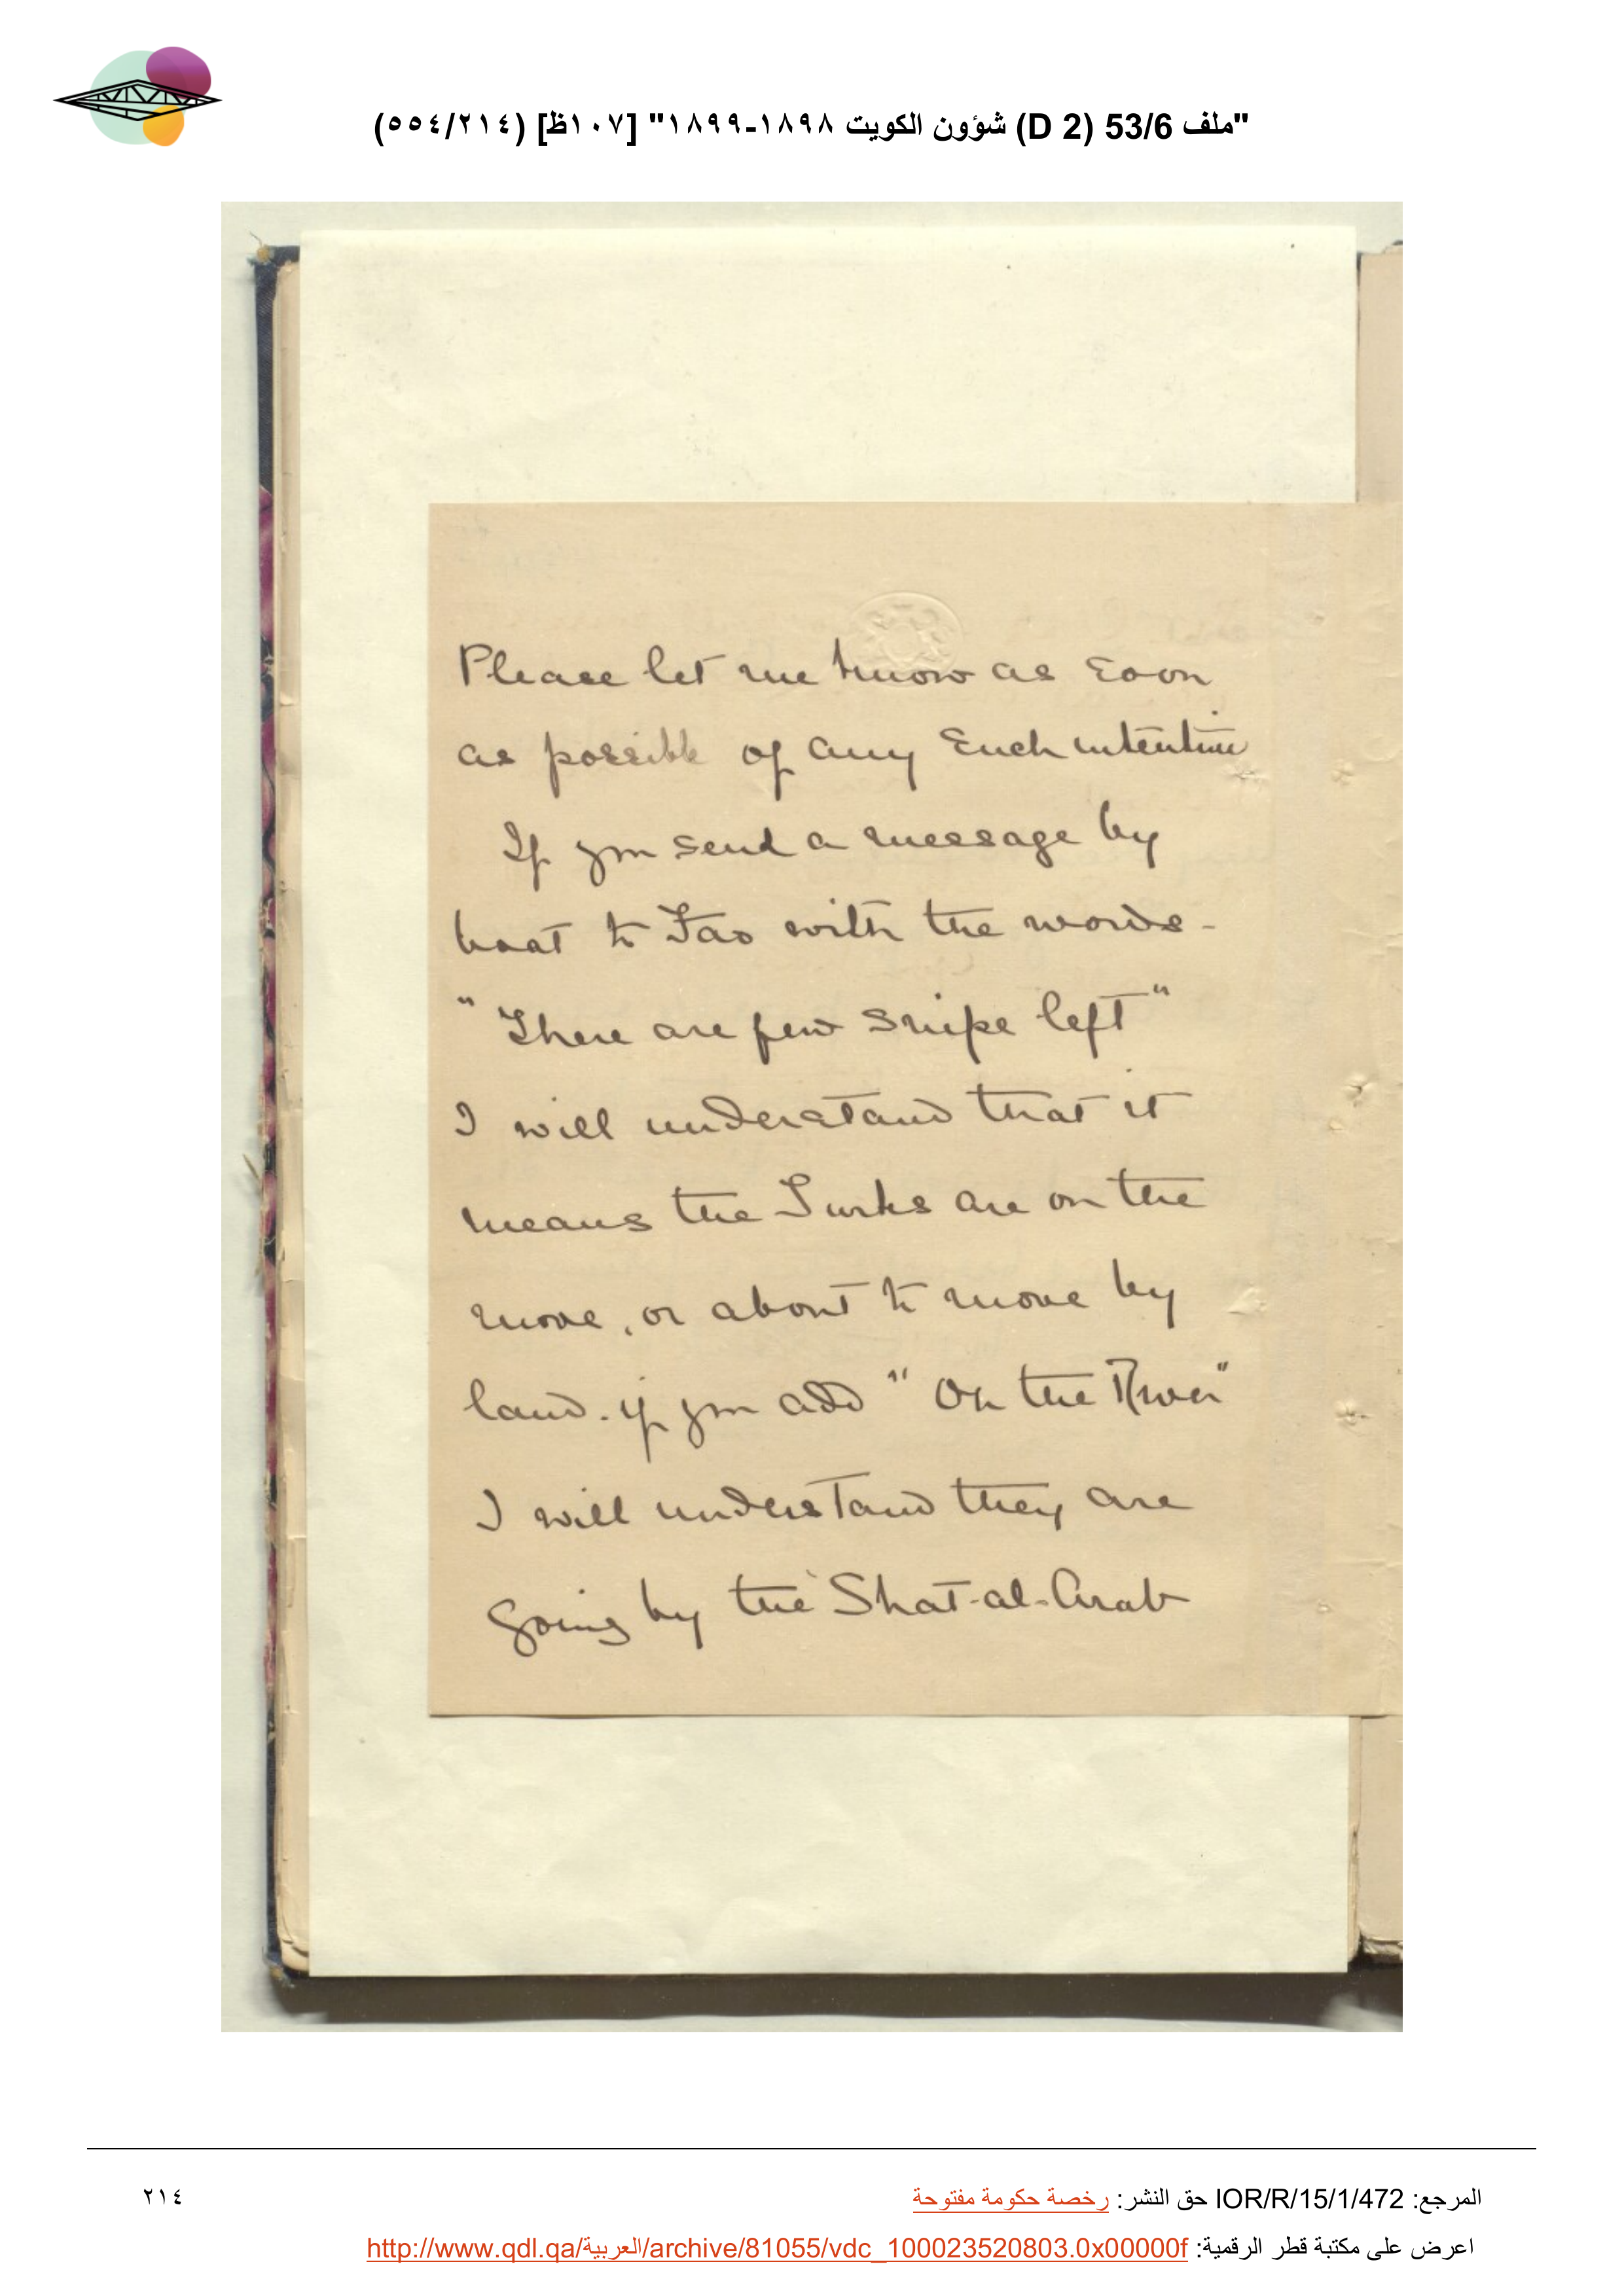 "ملف 53/6 (D 2) شؤون الكويت ١٨٩٨-١٨٩٩" [١٠٧ظ] (٥٥٤/٢١٤)
Please let me know as soon
as possible of any such intention
If you send a message by
boat to Fao with the words -
"There are few snipe left"
I will understand that it
means the Turks are on the
move, or about to move by
land. if you add "On the River"
I will understand they are
going by the Shat-al-Arab
المرجع: IOR/R/15/1/472 حق النشر: رخصة حكومة مفتوحة
٢١٤
اعرض على مكتبة قطر الرقمية: http://www.qdl.qa/العربية/archive/81055/vdc_100023520803.0x00000f